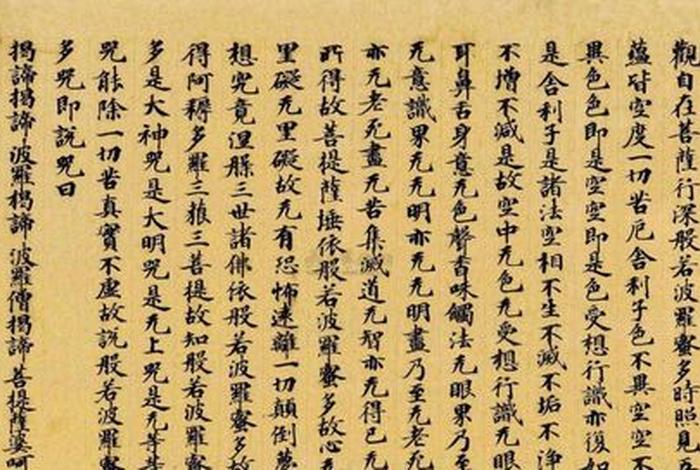 觀自在菩薩行深般若波羅蜜多時照見五
蘊皆空度一切苦厄舍利子色不異空空不
異色色即是空空即是色受想行識亦復如
是舍利子是諸法空相不生不滅不垢不淨
不增不減是故空中无色无受想行識无眼
耳鼻舌身意无色聲香味觸法无眼界乃至
无意識界无无明亦无无明盡乃至无老死
亦无老死盡无苦集滅道无智亦无得已无
所得故菩提薩埵依般若波羅蜜多故心无
罣礙无罣礙故无有恐怖遠離一切顛倒夢
想究竟涅槃三世諸佛依般若波羅蜜多故
得阿耨多羅三藐三菩提故知般若波羅蜜
多是大神咒是大明咒是无上咒是无等等
咒能除一切苦真實不虛故說般若波羅蜜
多咒即說咒曰
揭諦揭諦 波羅揭諦 波羅僧揭諦 菩提薩婆訶